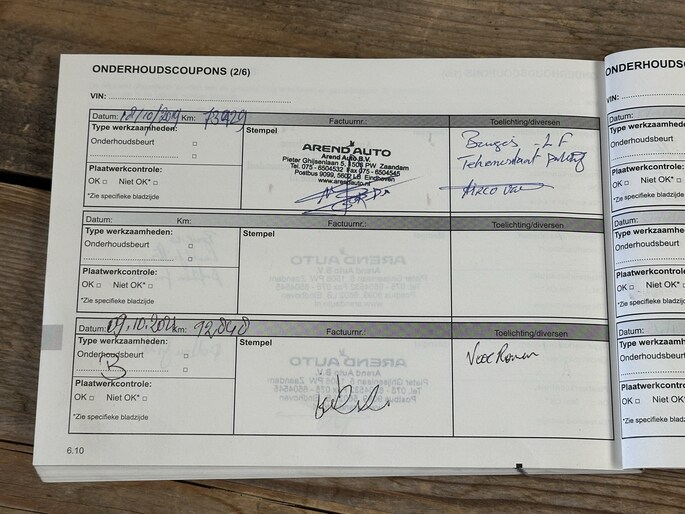 ONDERHOUDSCOUPONS (2/6)
VIN:
Datum: 18/10/2019 Km: 73929 Factuurnr.: Toelichting/diversen
Type werkzaamheden:
Onderhoudsbeurt
Plaatwerkcontrole:
OK Niet OK*
*Zie specifieke bladzijde
Stempel
AREND AUTO
Arend Auto B.V.
Pieter Ghijsenlaan 5, 1506 PW Zaandam
Tel. 075 - 6504532 Fax 075 - 6504545
Postbus 9099, 5602 LB Eindhoven
www.arendauto.nl
Datum: Km: Factuurnr.: Toelichting/diversen
Type werkzaamheden:
Onderhoudsbeurt
Plaatwerkcontrole:
OK Niet OK*
*Zie specifieke bladzijde
Stempel
Datum: 09.10.2021 Km: 92.848 Factuurnr.: Toelichting/diversen
Type werkzaamheden:
Onderhoudsbeurt
B
Plaatwerkcontrole:
OK Niet OK*
*Zie specifieke bladzijde
Stempel
6.10
ONDERHOUDSC
VIN:
Datum:
Type werkzaam
Onderhoudsbeurt
Plaatwerkcontrole
OK Niet OK*
*Zie specifieke bladz
Datum:
Type werkzaamhe
Onderhoudsbeurt
Plaatwerkcontrole:
OK Niet OK*
*Zie specifieke bladzij
Datum:
Type werkzaamhede
Onderhoudsbeurt
Plaatwerkcontrole:
OK Niet OK*
*Zie specifieke bladzijde